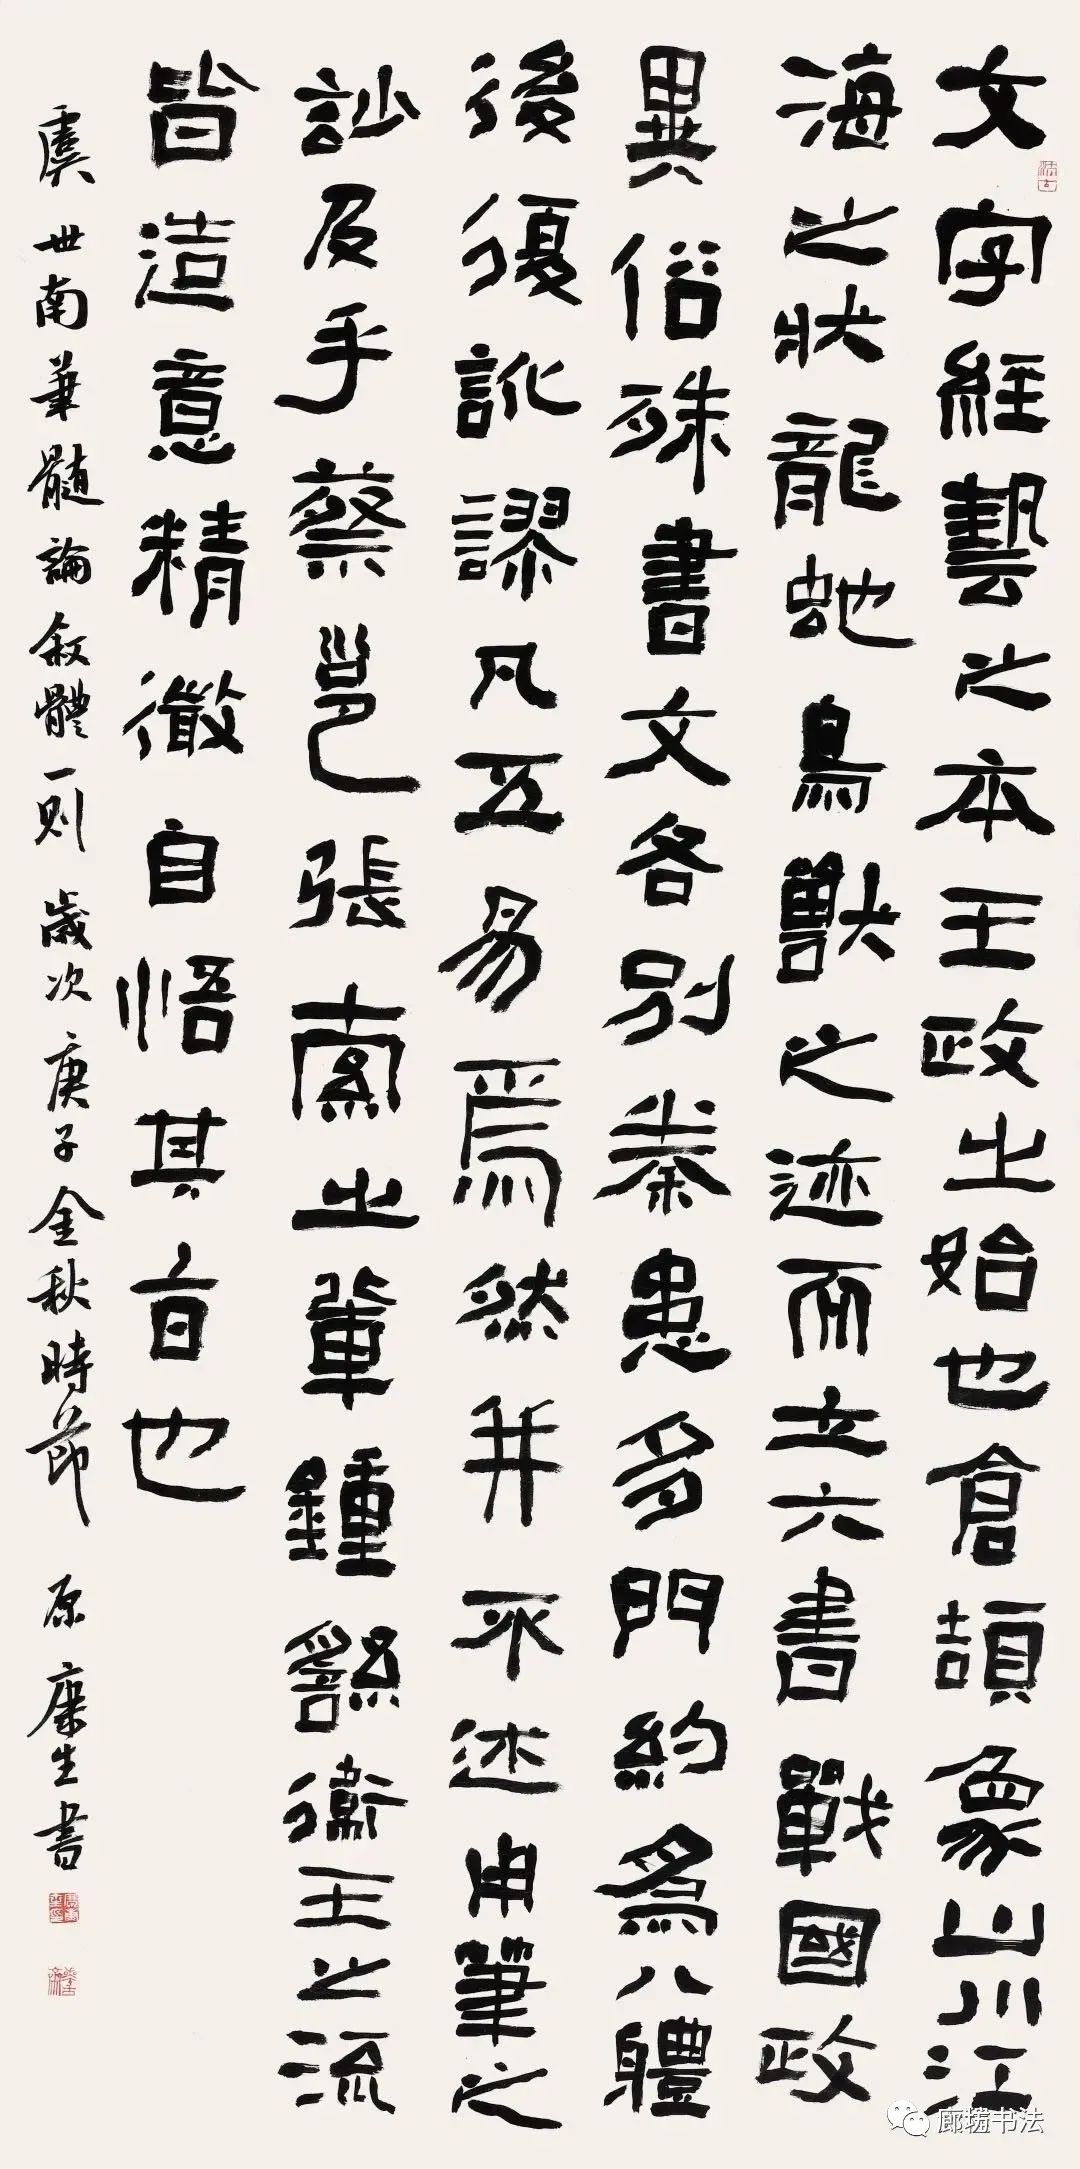 文字經藝之本王政之始也倉頡象山川江
海之狀龍蛇鳥獸之迹而立六書戰國政
異俗殊書文各別秦患多門約爲八體
後復訛謬凡五易焉然并不述用筆之
訬及乎蔡邕張索之輩鍾繇衛王之流
皆造意精微自悟其旨也
虞世南筆髓論叙體一则 歲次庚子金秋時節 原康生書
书法